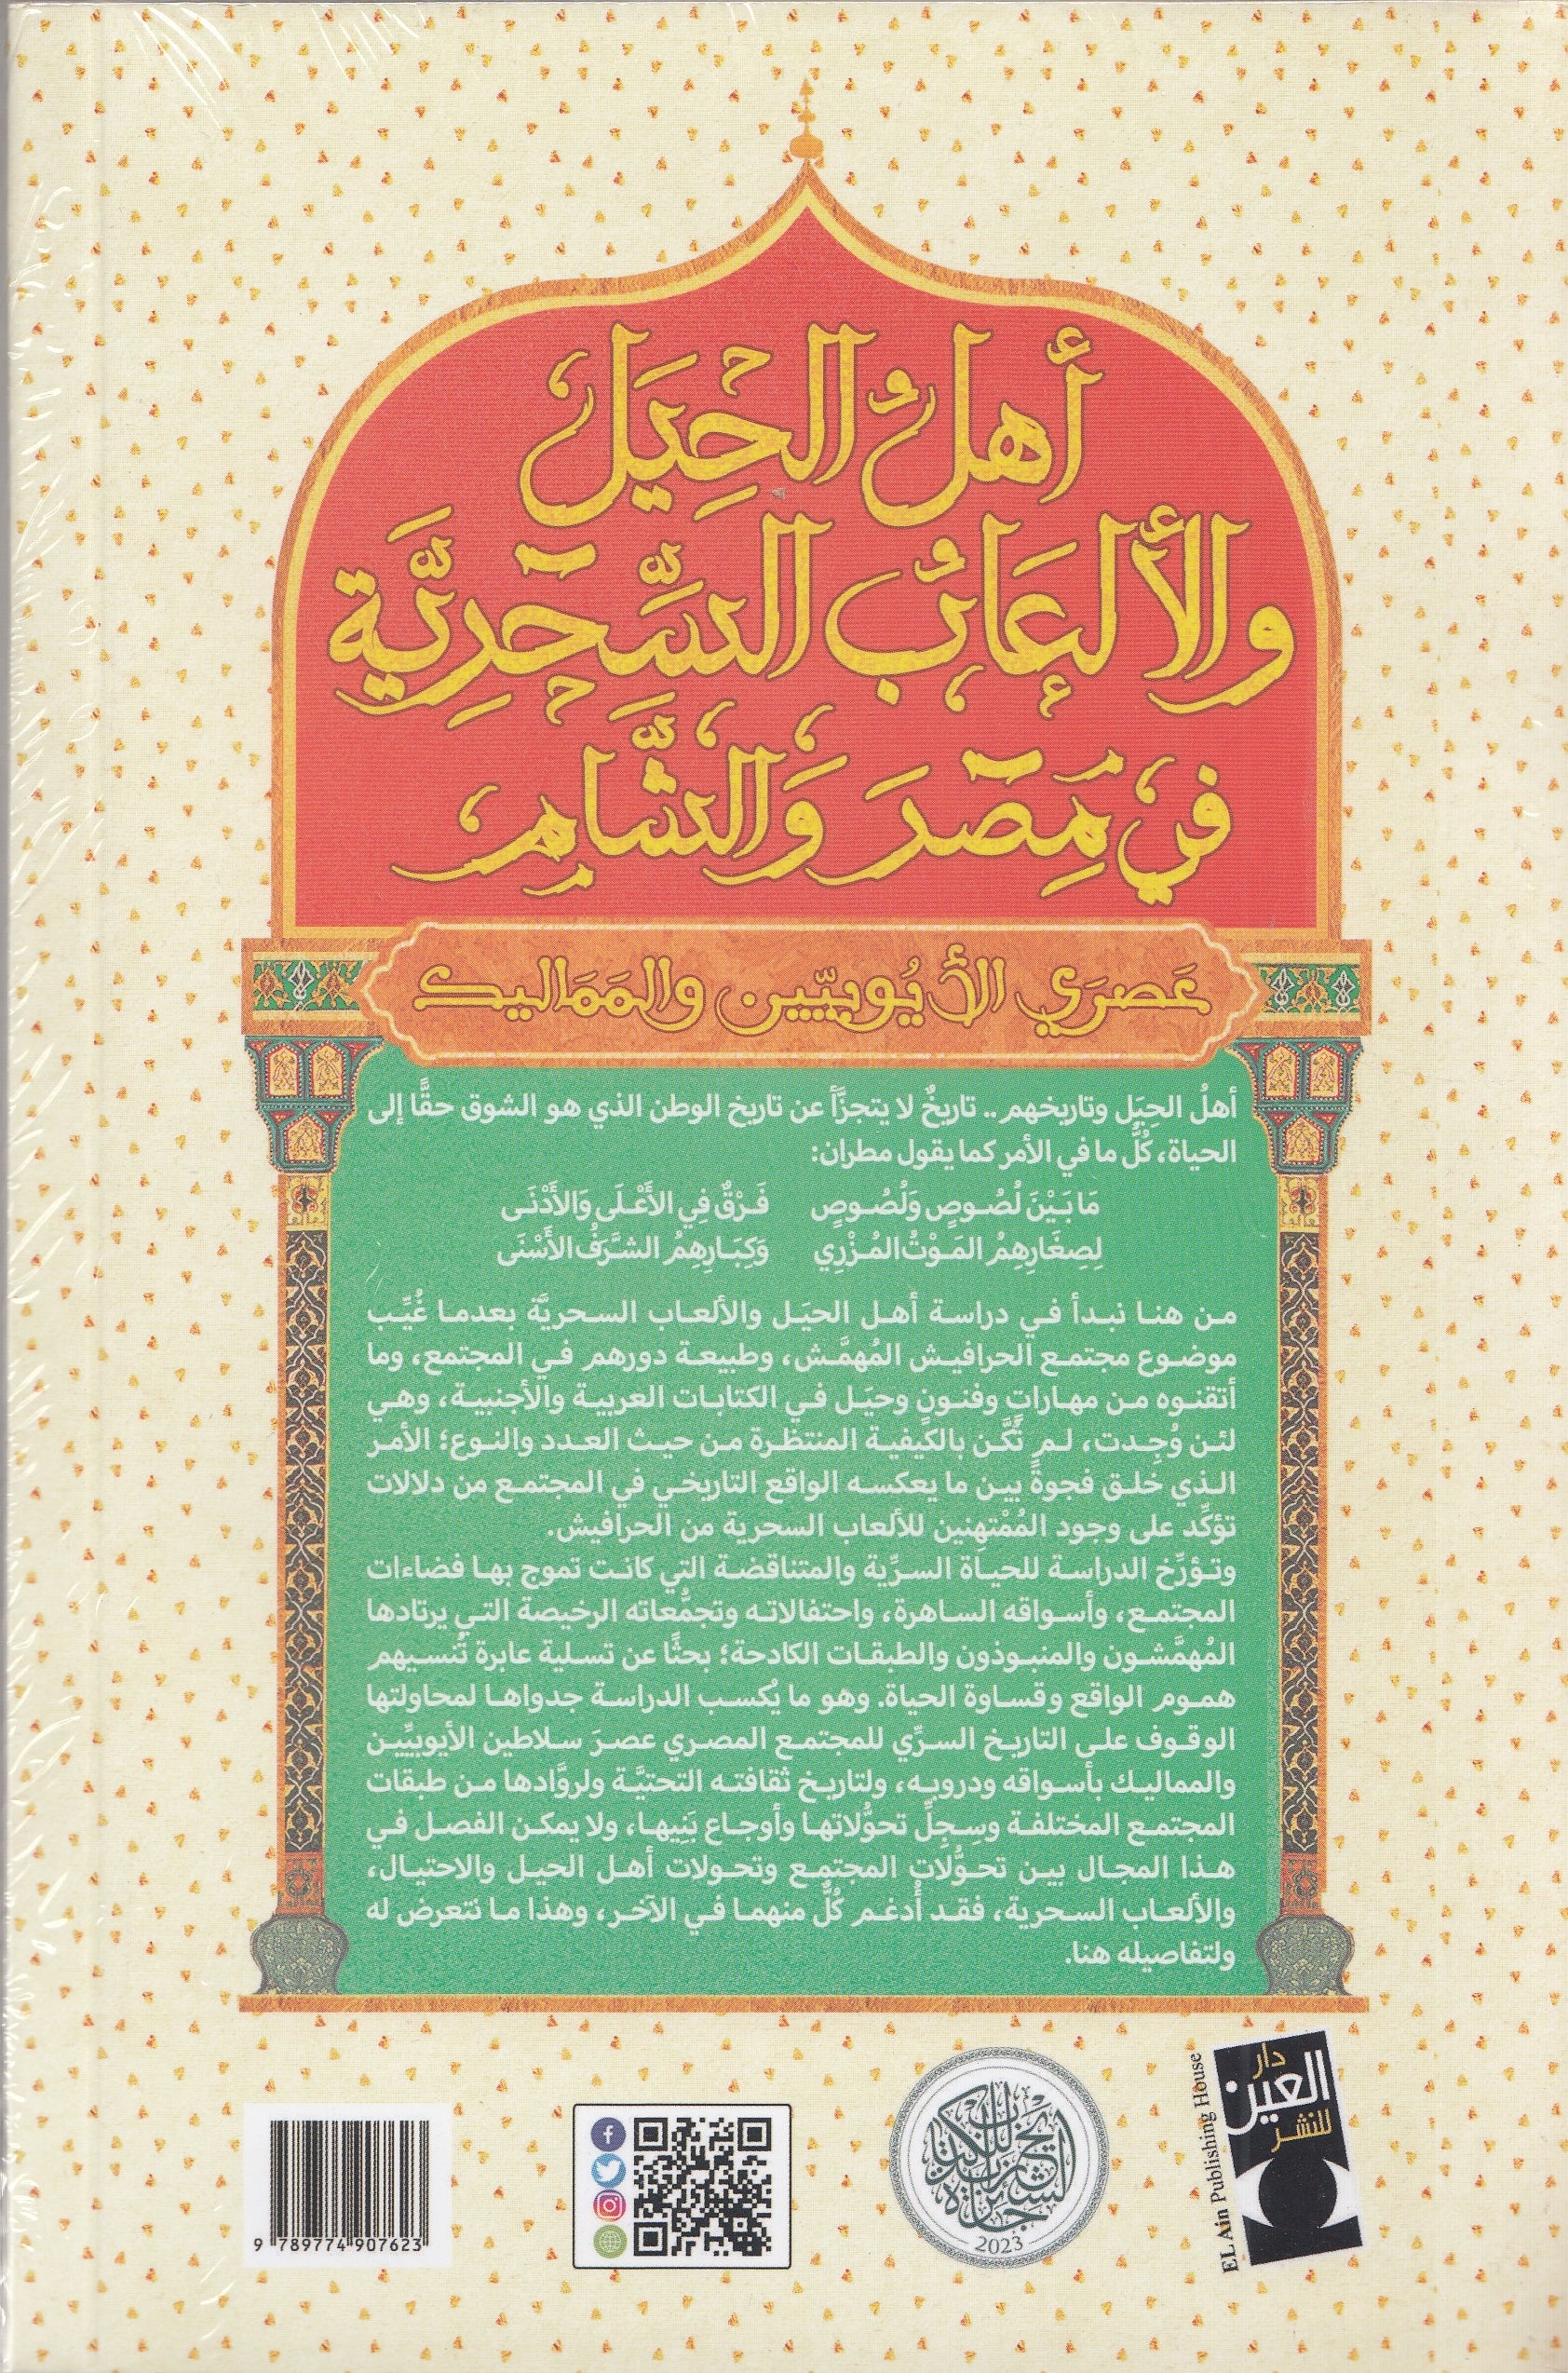 أهلُ الحِيَل
والألعَابُ السِّحْرِيَّة
في مِصْرَ وَالشَّام
عَصرَي الأيُوبيّين والمَمَاليك
أهلُ الحِيَل وتاريخهم .. تاريخٌ لا يتجزَّأ عن تاريخ الوطن الذي هو الشوق حقًّا إلى
الحياة، كُلُّ ما في الأمر كما يقول مطران:
مَا بَيْنَ لُصُوصٍ وَلُصُوصٍ فَرْقٌ فِي الأَعْلَى وَالأَدْنَى
لِصِغَارِهِمُ المَوْتُ المُزْرِي وَكِبَارِهِمُ الشَّرَفُ الأَسْنَى
من هنا نبدأ في دراسة أهل الحيَل والألعاب السحريَّة بعدما غُيِّب
موضوع مجتمع الحرافيش المُهمَّش، وطبيعة دورهم في المجتمع، وما
أتقنوه من مهاراتٍ وفنونٍ وحيَل في الكتابات العربية والأجنبية، وهي
لئن وُجِدت، لم تَكُن بالكيفية المنتظرة من حيث العدد والنوع؛ الأمر
الذي خلق فجوةً بين ما يعكسه الواقع التاريخي في المجتمع من دلالات
تؤكِّد على وجود المُمْتهِنين للألعاب السحرية من الحرافيش.
وتؤرِّخ الدراسة للحياة السرِّية والمتناقضة التي كانت تموج بها فضاءات
المجتمع، وأسواقه الساهرة، واحتفالاته وتجمُّعاته الرخيصة التي يرتادها
المُهمَّشون والمنبوذون والطبقات الكادحة؛ بحثًا عن تسلية عابرة تُنسيهم
هموم الواقع وقساوة الحياة. وهو ما يُكسب الدراسة جدواها لمحاولتها
الوقوف على التاريخ السرِّي للمجتمع المصري عصرَ سلاطين الأيوبيِّين
والمماليك بأسواقه ودروبه، ولتاريخ ثقافته التحتيَّة ولروَّادها من طبقات
المجتمع المختلفة وسِجِلِّ تحوُّلاتها وأوجاع بَنِيها، ولا يمكن الفصل في
هذا المجال بين تحوُّلات المجتمع وتحولات أهل الحيل والاحتيال،
والألعاب السحرية، فقد أُدغم كُلٌّ منهما في الآخر، وهذا ما نتعرض له
ولتفاصيله هنا.
دار
العين
للنشر
EL Ain Publishing House
جائزة الشارقة... 
2023
9 789774 907623